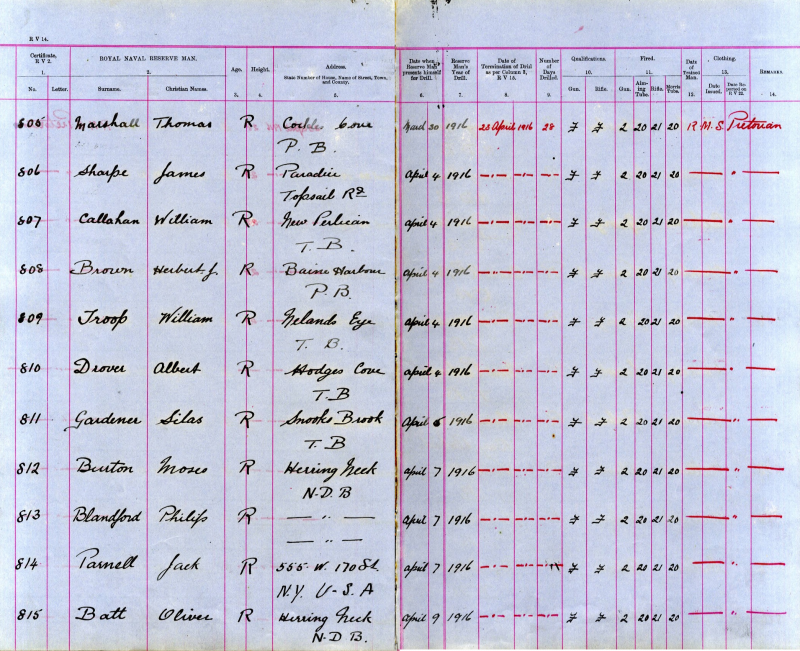 R V 14.
Certificate, R V 2. ROYAL NAVAL RESERVE MAN. Age. Height. Address. State Number of House, Name of Street, Town, and County. Date when Reserve Man presents himself for Drill. Reserve Man's Year of Drill. Date of Termination of Drill as per Column 8, R V 15. Number of Days Drilled. Qualifications. Fired. Date of Trained Man. Clothing. REMARKS.
1. 2. 3. 4. 5. 6. 7. 8. 9. 10. 11. 12. 13. 14.
No. Letter. Surname. Christian Names. Gun. Rifle. Gun. Aiming Tube. Rifle. Morris Tube. Date Issued. Date Reported on R V 22.
805 Marshall Thomas R Cove March 30 1916 28 April 1916 28 2 20 21 20 R.M.S. Pretorian
P. B
806 Sharpe James R Paradice April 4 1916 — " — " — — " — 2 20 21 20 — " —
Topsail Rd
807 Callahan William R New Perlican April 4 1916 — " — " — — " — 2 20 21 20 — " —
T. B.
808 Brown Herbert J. R Baine Harbour April 4 1916 — " — " — — " — 2 20 21 20 — " —
P. B.
809 Troop William R Nelands Eye April 4 1916 — " — " — — " — 2 20 21 20 — " —
T. B.
810 Drover Albert R Hodges Cove April 4 1916 — " — " — — " — 2 20 21 20 — " —
T. B
811 Gardener Silas R Snooks Brook April 6 1916 — " — " — — " — 2 20 21 20 — " —
T. B
812 Burton Moses R Herring Neck April 7 1916 — " — " — — " — 2 20 21 20 — " —
N. D. B
813 Blandford Philip R — " — April 7 1916 — " — " — — " — 2 20 21 20 — " —
— " —
814 Parnell Jack R 555. W. 170 St April 7 1916 — " — " — 2 20 21 20 — " —
N.Y. U-S. A
815 Batt Oliver R Herring Neck April 9 1916 — " — " — — " — 2 20 21 20 — " —
N. D. B.